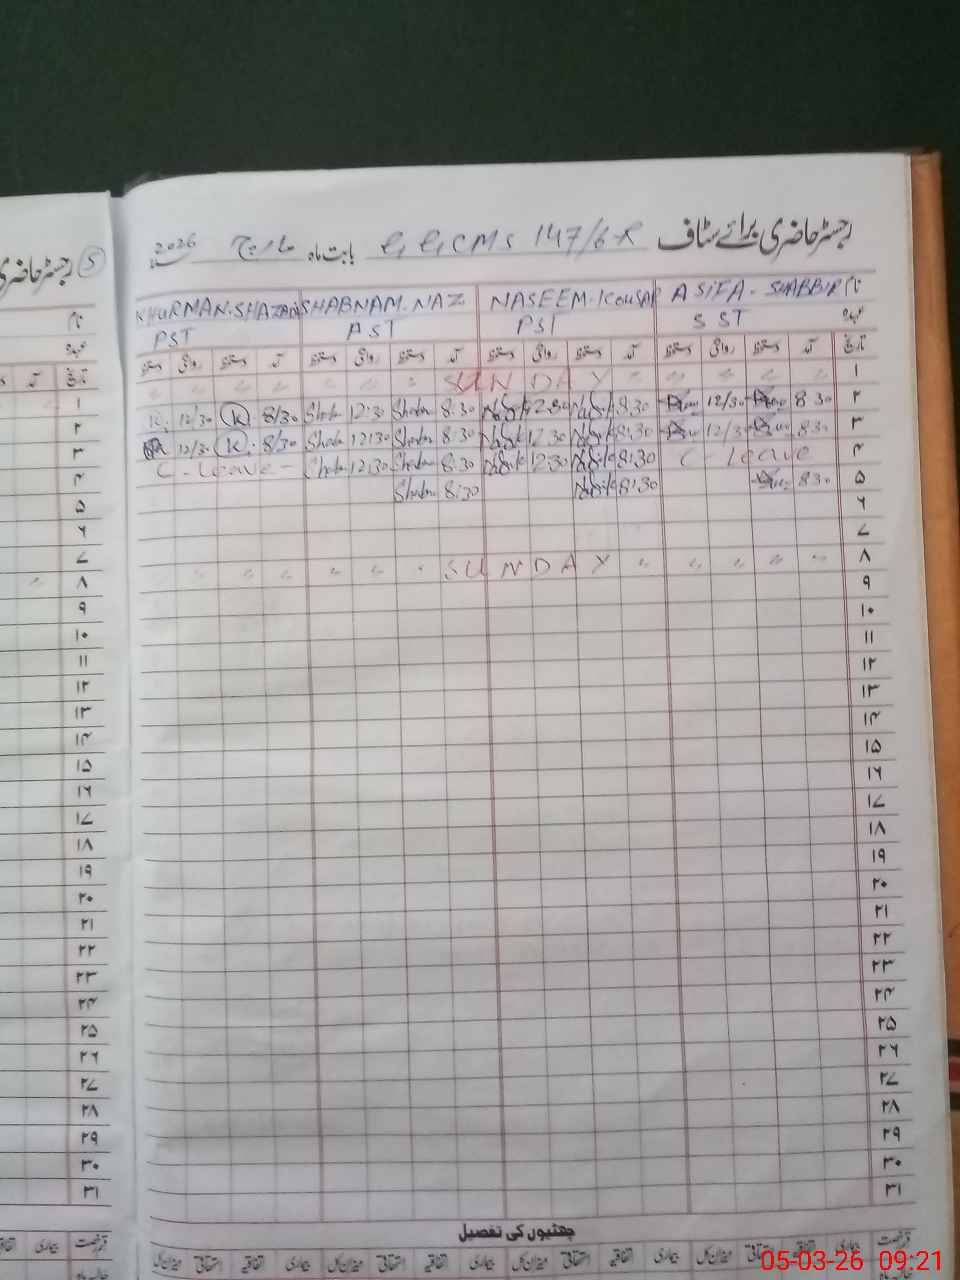 رجسٹر حاضری برائے سٹاف GGCMS 147/6-R بابت ماہ مارچ 2026
نام ASIFA - SHABBIR NASEEM-KOUSAR SHABNAM.NAZ KHURMAN.SHAZADI
عہدہ SST PST AST PST
تاریخ آمد دستخط روانگی دستخط آمد دستخط روانگی دستخط آمد دستخط روانگی دستخط آمد دستخط روانگی دستخط
۱ SUNDAY
۲ 8:30 12/30 8:30 12:30 8:30 Shab 12:30 Shab 8/30 K 12/30
۳ 8:30 12/30 8:30 12:30 8:30 Shab 12:30 Shab 8/30 K 12/30
۴ C - leave 8:30 12:30 8:30 Shab 12:30 Shab C - leave -
۵ 8:30 8:30 8:30 Shab
۶
۷
۸ SUNDAY
۹
۱۰
۱۱
۱۲
۱۳
۱۴
۱۵
۱۶
۱۷
۱۸
۱۹
۲۰
۲۱
۲۲
۲۳
۲۴
۲۵
۲۶
۲۷
۲۸
۲۹
۳۰
۳۱
چھٹیوں کی تفصیل
قسم رخصت بیماری اتفاقیہ استحقاقی میزان کل بیماری اتفاقیہ استحقاقی میزان کل اتفاقیہ استحقاقی میزان کل اتفاقیہ استحقاقی میزان کل
رجسٹر حاضری
5
نام
عہدہ
تاریخ آمد
۱
۲
۳
۴
۵
۶
۷
۸
۹
۱۰
۱۱
۱۲
۱۳
۱۴
۱۵
۱۶
۱۷
۱۸
۱۹
۲۰
۲۱
۲۲
۲۳
۲۴
۲۵
۲۶
۲۷
۲۸
۲۹
۳۰
۳۱
قسم رخصت بیماری
05-03-26 09:21